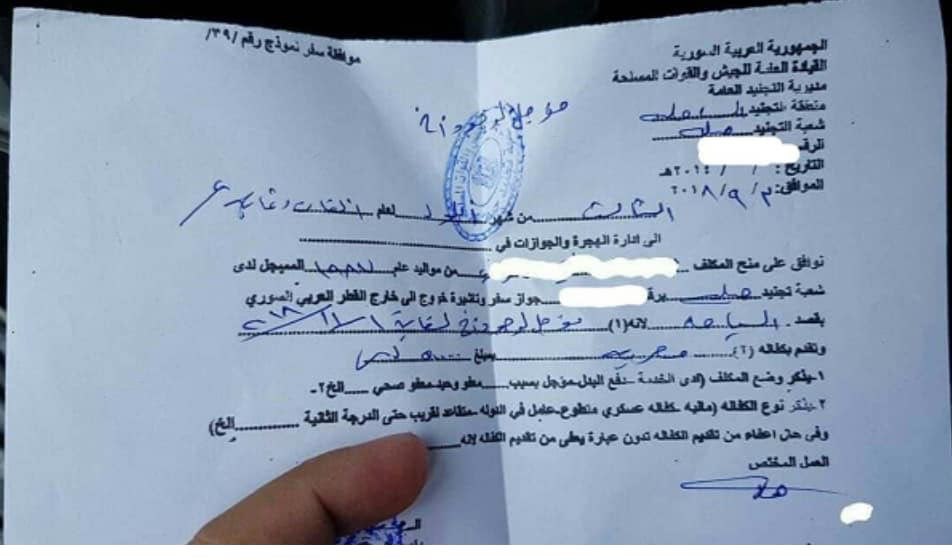 الجمهورية العربية السورية
القيادة العامة للجيش والقوات المسلحة
مديرية التجنيد العامة
منطقة التجنيد
شعبة التجنيد
الرقم
التاريخ: / / ٢٠١٤هـ
الموافق: ٣ / ٩ / ٢٠١٨
موافقة سفر نموذج رقم /٣٩/
مؤجل لوجود أخ
الثالث من شهر أيلول لعام
الى ادارة الهجرة والجوازات في
نوافق على منح المكلف من مواليد عام المسجل لدى
شعبة تجنيد برقم جواز سفر وتأشيرة خروج الى خارج القطر العربي السوري
بقصد السياحة لانه(١) مؤجل لوجود أخ لغاية
وتقدم بكفاله (٢) بمبلغ
١-يذكر وضع المكلف (ادى الخدمة –دفع البدل-مؤجل بسبب معفو وحيد-معفو صحي الخ٢-
٢-يذكر نوع الكفاله (ماليه –كفاله عسكري متطوع-عامل في الدوله –متقاعد لقريب حتى الدرجة الثانية الخ)
وفي حال اعفاء من تقديم الكفاله تدون عبارة يعفى من تقديم الكفاله لانه
العمل المختص